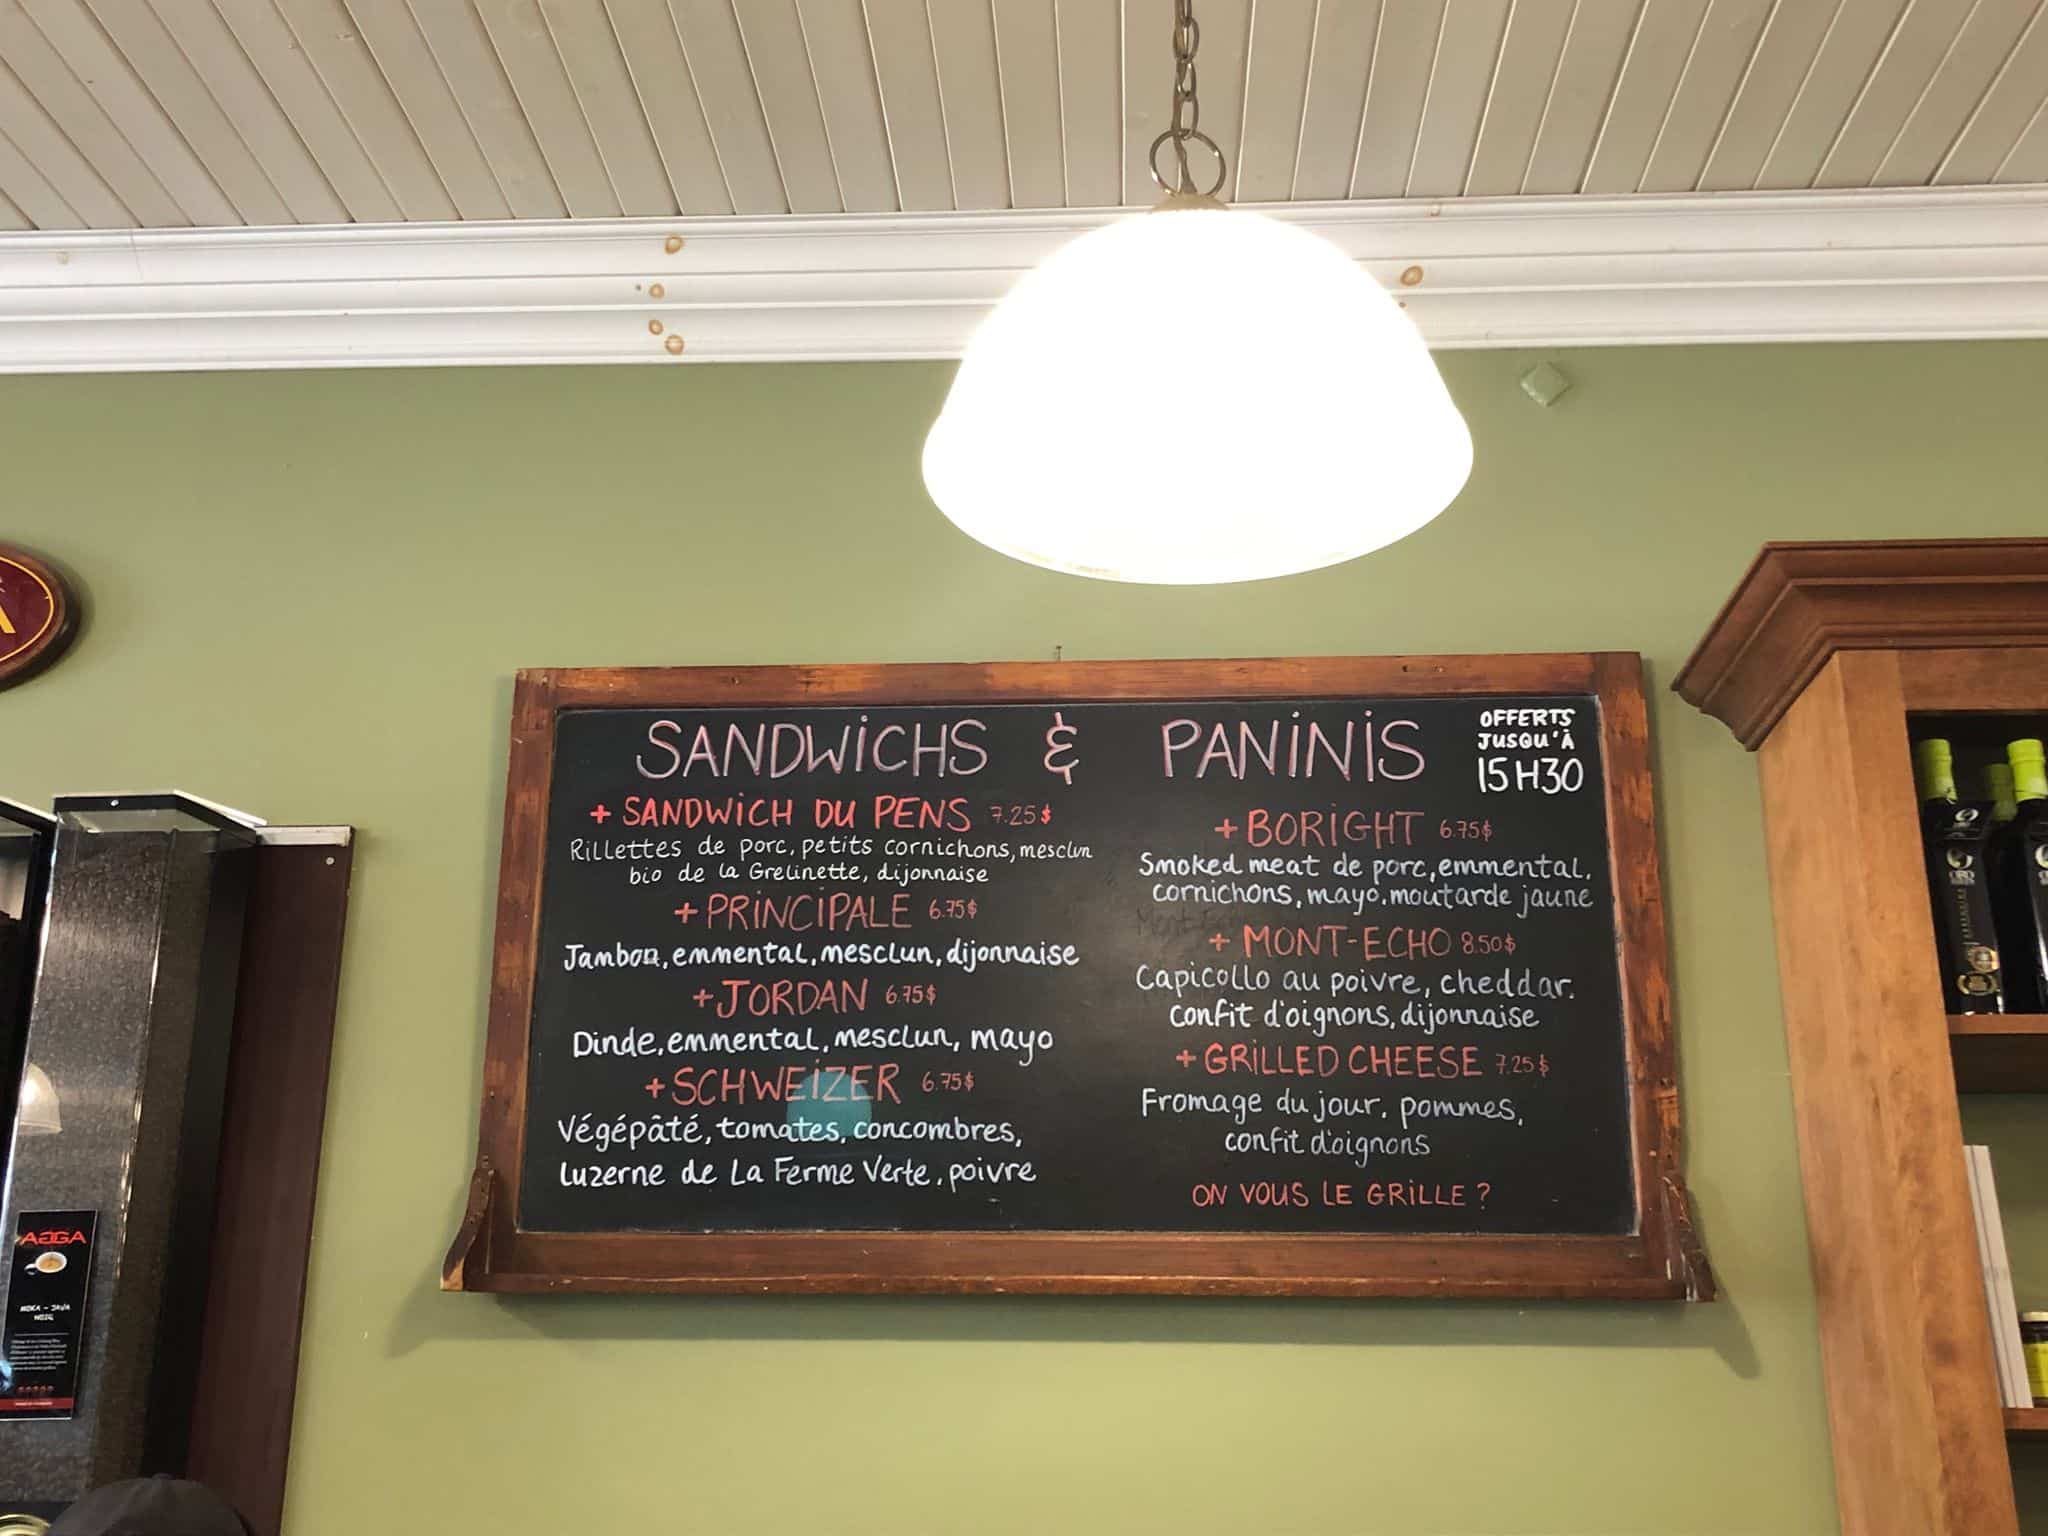 SANDWiCHS & PANiNiS
OFFERTS
JUSQU'À
15H30
+ SANDWiCH DU PENS 7.25$
Rillettes de porc, petits cornichons, mesclun
bio de la Grelinette, dijonnaise
+ PRiNCiPALE 6.75$
Jambon, emmental, mesclun, dijonnaise
+ JORDAN 6.75$
Dinde, emmental, mesclun, mayo
+ SCHWEiZER 6.75$
Végépâté, tomates, concombres,
luzerne de La Ferme Verte, poivre
+ BORiGHT 6.75$
Smoked meat de porc, emmental,
cornichons, mayo, moutarde jaune
+ MONT-ECHO 8.50$
Capicollo au poivre, cheddar,
confit d'oignons, dijonnaise
+ GRiLLED CHEESE 7.25$
Fromage du jour, pommes,
confit d'oignons
ON VOUS LE GRiLLE ?
AGGA
MOKA - JAVA